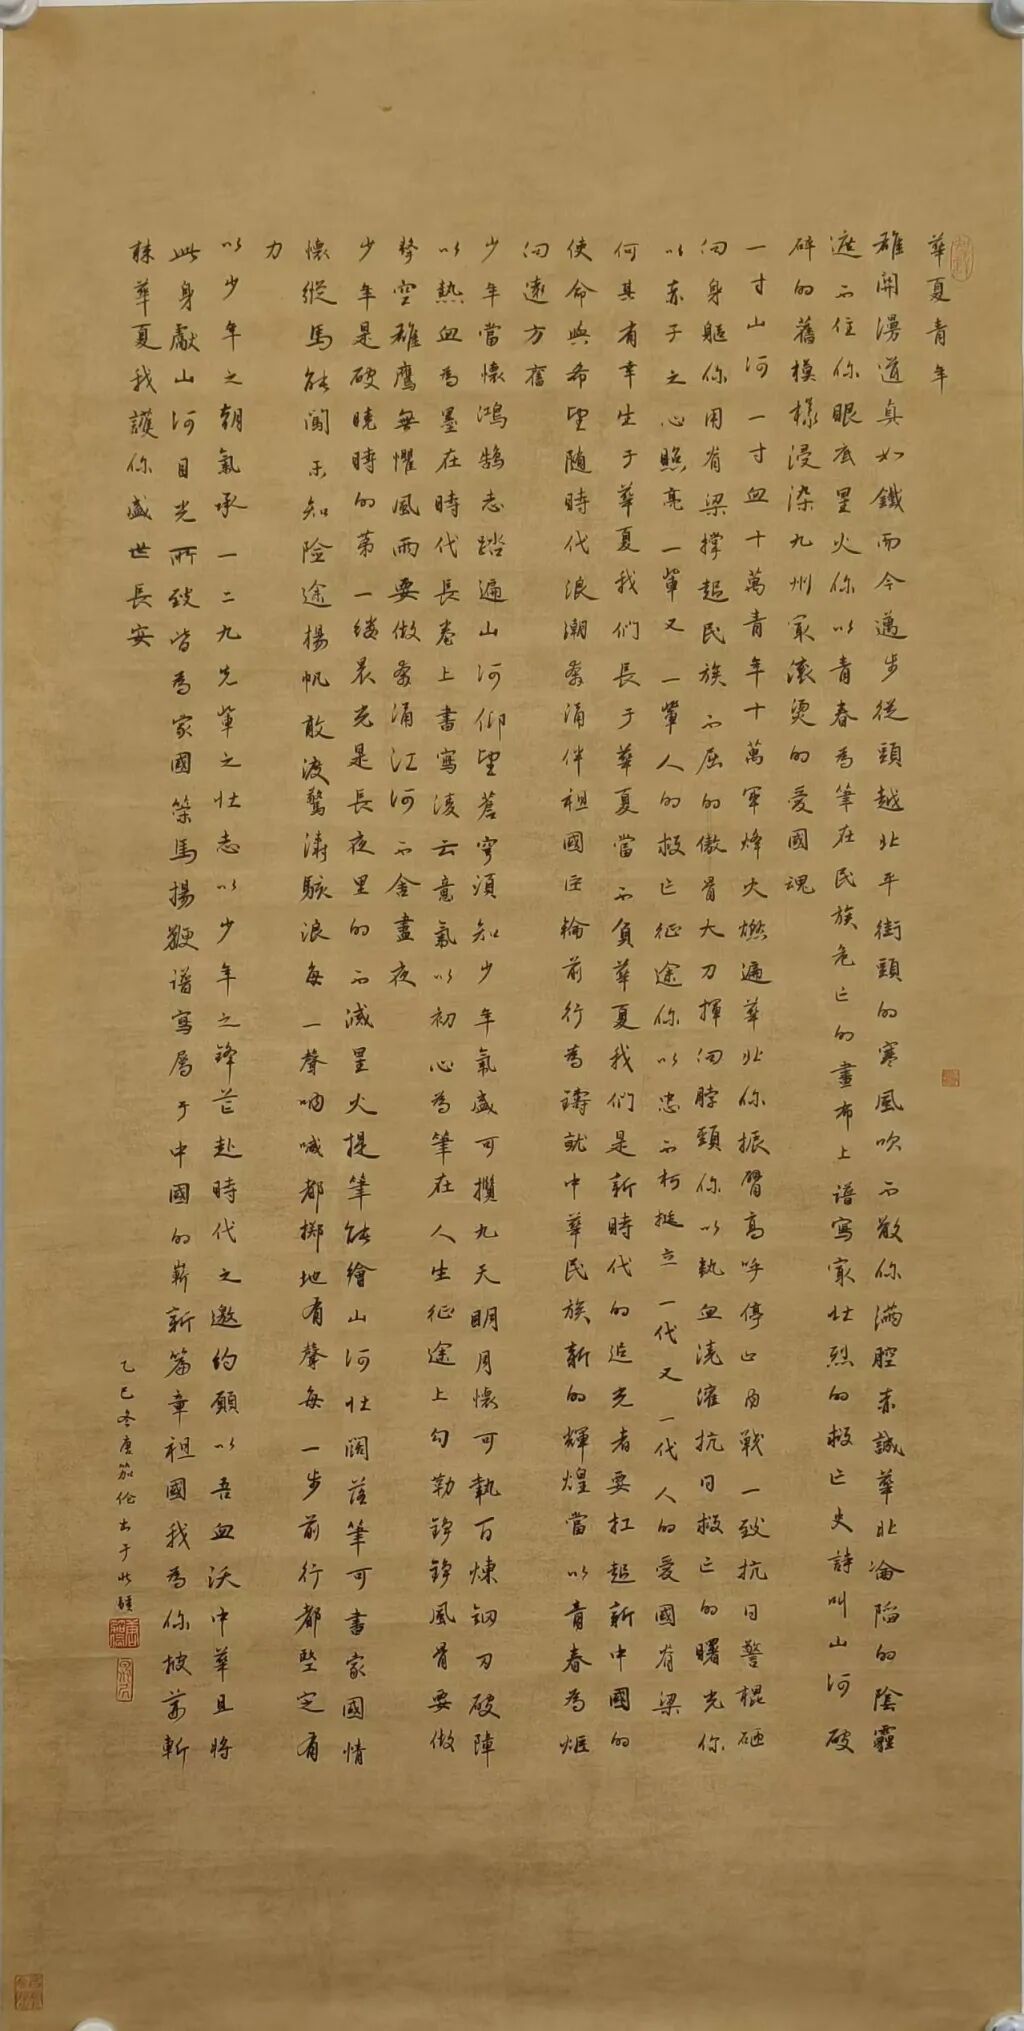 華夏青年
雄關漫道真如鐵而今邁步從頭越北平街頭的寒風吹不散你滿腔赤誠華北淪陷的陰霾
遮不住你眼底星火你以青春為筆在民族危亡的畫布上譜寫最壯烈的救亡史詩叫山河破
碎的舊模樣浸染九州最滾燙的愛國魂
一寸山河一寸血十萬青年十萬軍烽火燃遍華北你振臂高呼停止內戰一致抗日警棍砸
向身軀你用脊梁撐起民族不屈的傲骨大刀揮向脖頸你以熱血澆灌抗日救亡的曙光你
以赤子之心照亮一輩又一輩人的救亡征途你以忠不柯挺立一代又一代人的愛國脊梁
何其有幸生于華夏我们長于華夏當不負華夏我们是新時代的追光者要扛起新中國的
使命與希望随時代浪潮奔涌伴祖國巨輪前行為鑄就中華民族新的輝煌當以青春為炬
向遠方奮
少年當懷鴻鵠志踏遍山河仰望蒼穹須知少年氣盛可攬九天明月懷可執百煉鋼刀破陣
以熱血為墨在時代長卷上書寫凌云意氣以初心為筆在人生征途上勾勒錚錚風骨要做
擊空雄鷹無懼風雨要做奔涌江河不舍晝夜
少年是破曉時的第一縷晨光是長夜里的不滅星火提筆能繪山河壯闊落筆可書家國情
懷縱馬能闖未知险途揚帆敢渡驚濤駭浪每一聲吶喊都擲地有聲每一步前行都堅定有
力
以少年之朝氣承一二九先輩之壯志以少年之鋒芒赴時代之邀約願以吾血沃中華且將
此身獻山河目光所致皆為家國策馬揚鞭譜寫屬于中國的嶄新篇章祖國我為你披荊斬
棘華夏我護你盛世長安
乙巳冬唐笳伦书于